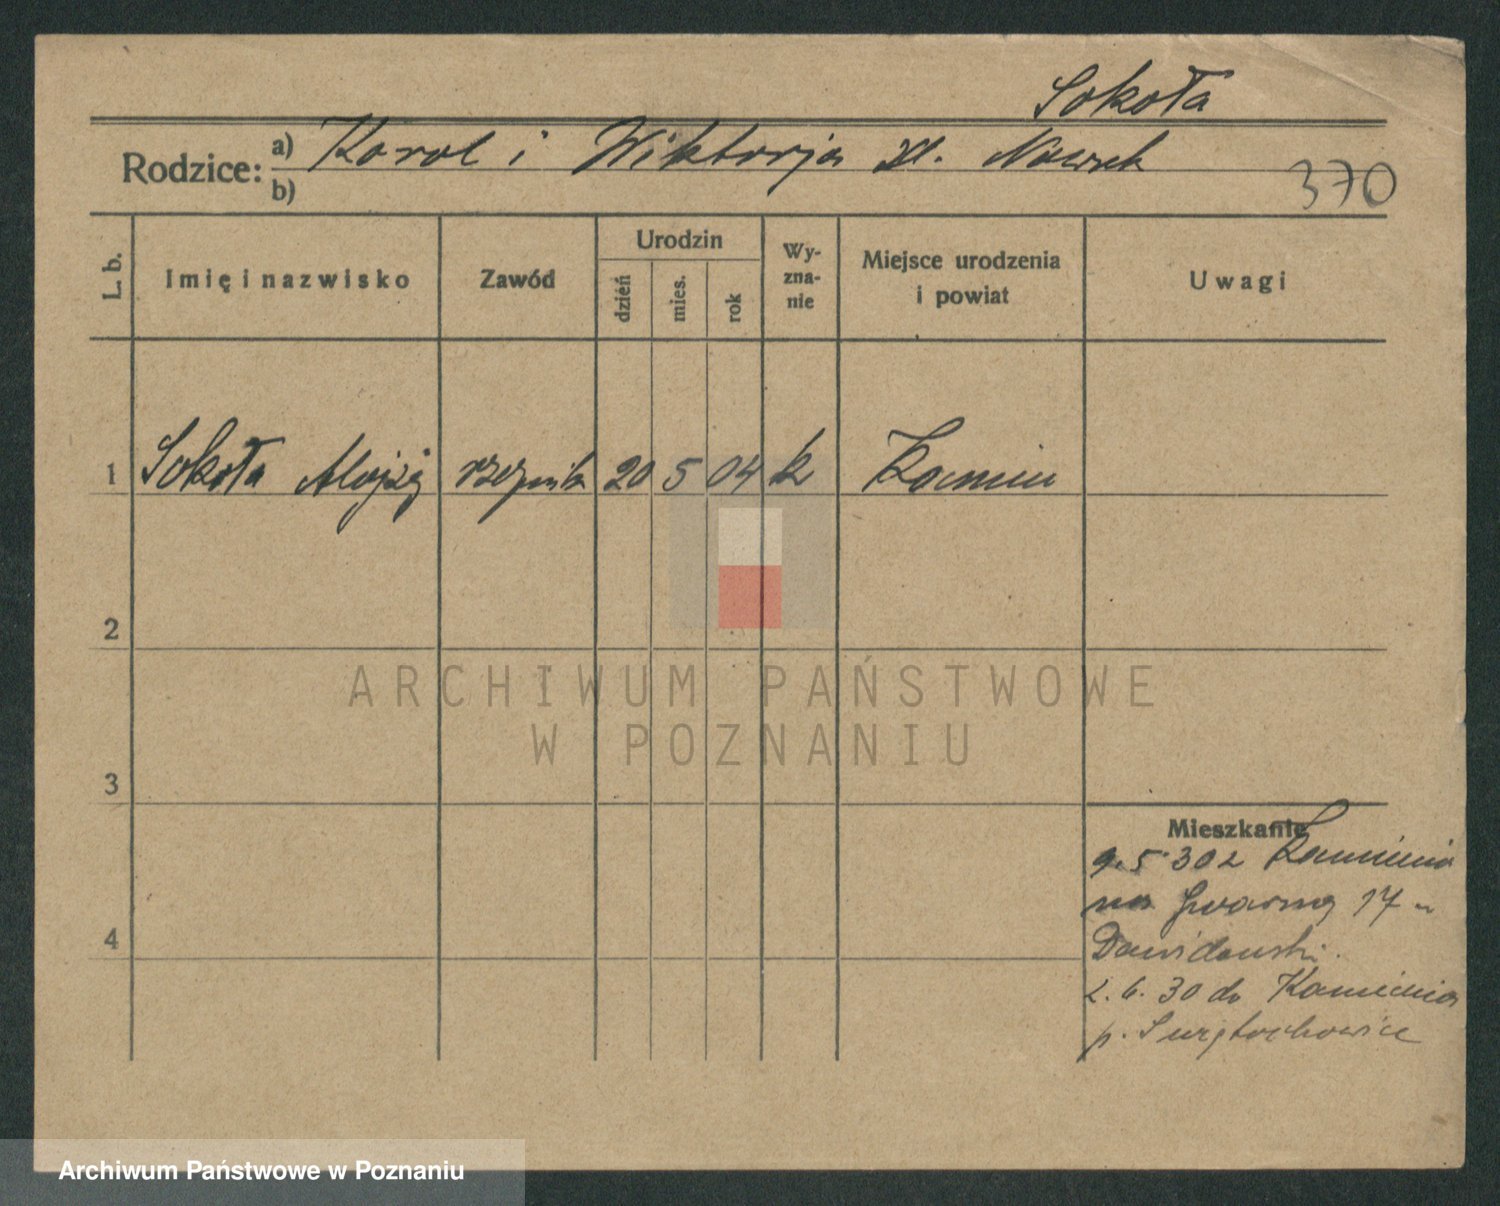 Sokoła
Rodzice: a) Karol i Wiktorja Nowak
b)
370
L. b.
Imię i nazwisko
Zawód
Urodzin
dzień
mies.
rok
Wy-
zna-
nie
Miejsce urodzenia
i powiat
Uwagi
1 Sokoła Alojzy rzeźnik 20 5 04 k Kamien
2
3
4
Mieszkanie
9.5 30 z Kamienia
na Gwarną 17
Dawidowski.
2. 6. 30 do Kamienia
p. Świętochowice
ARCHIWUM PAŃSTWOWE
W POZNANIU
Archiwum Państwowe w Poznaniu